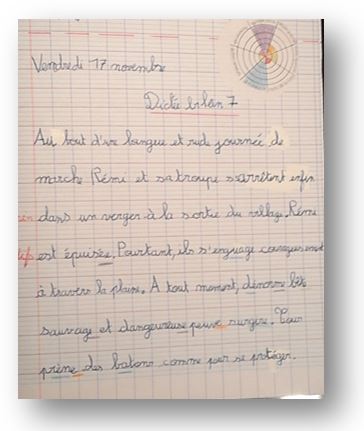 Vendredi 17 novembre
Dictée bilan 7
Au bout d'une longue et rude journée de
marche Rémi et sa troupe s'arrêtent enfin
dans un verger à la sortie du village. Rémi
est épuisée. Pourtant, ils s'enguage courageusement
à travers la plaine. A tout moment, dénorme bête
sauvage et dangeureuse peuve surgire. Tour
prène des batons comme pour se protéger.